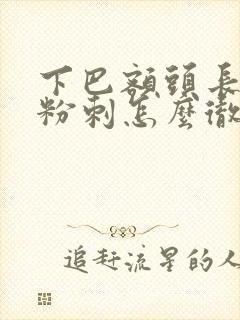 下巴額頭長
粉刺怎麼徹
追赶流星的人